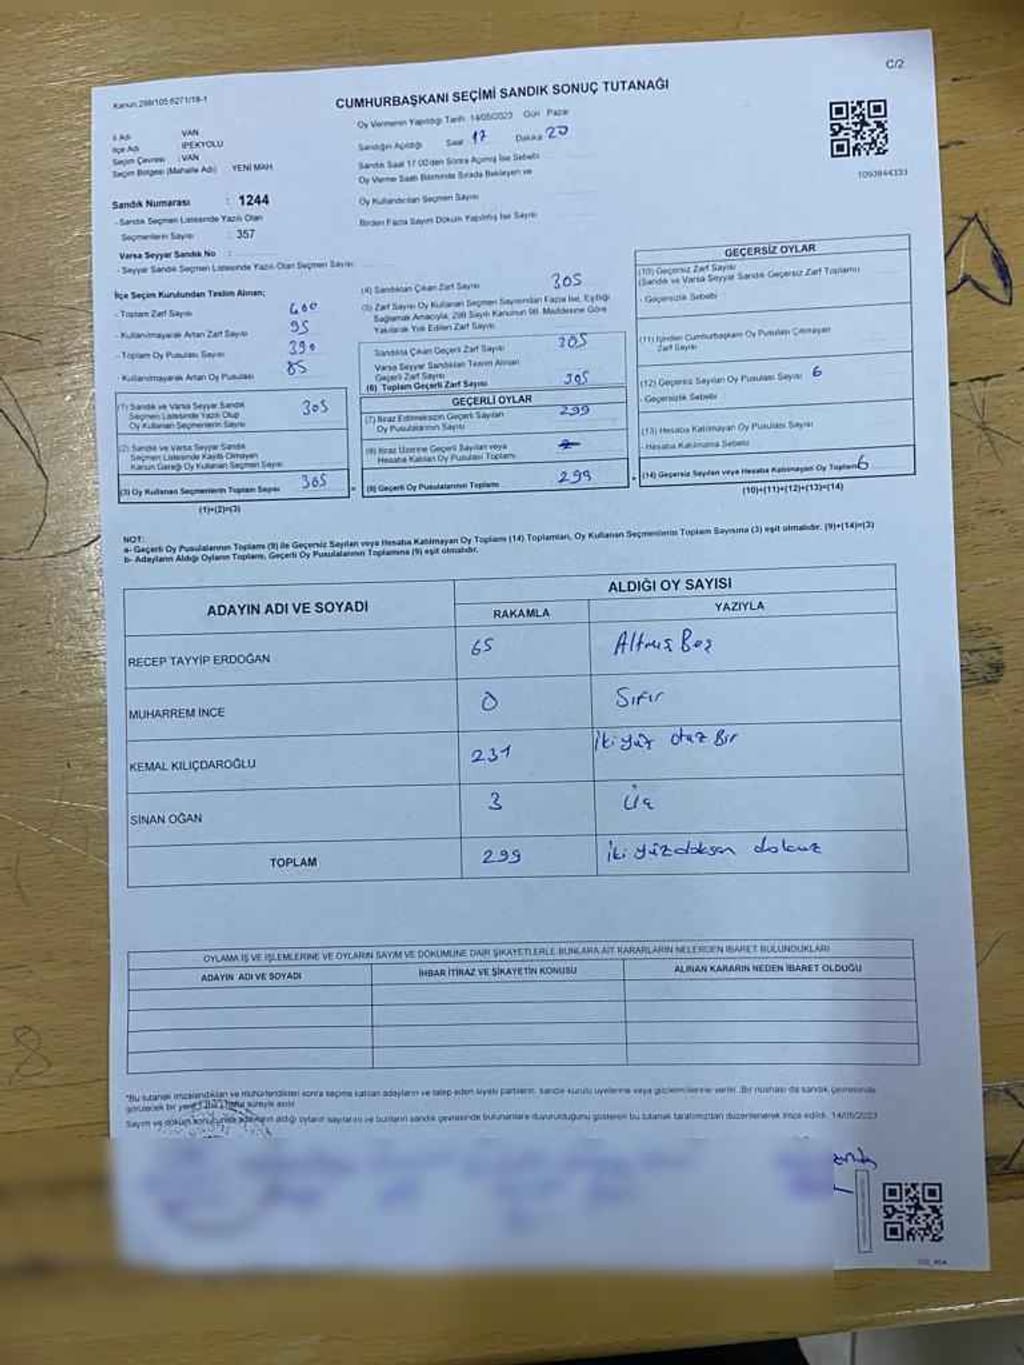 C/2
Kanun 298/105 6271/18-1
CUMHURBAŞKANI SEÇİMİ SANDIK SONUÇ TUTANAĞI
İl Adı VAN
İlçe Adı İPEKYOLU
Seçim Çevresi : VAN
Seçim Bölgesi (Mahalle Adı) YENİ MAH
Oy Vermenin Yapıldığı Tarih 14/05/2023 Gün Pazar
Sandığın Açıldığı Saat 17 Dakika 20
Sandık Saat 17 00'den Sonra Açılmış İse Sebebi
Oy Verme Saati Bitiminde Sırada Bekleyen ve
Oy Kullandırılan Seçmen Sayısı
Birden Fazla Sayım Döküm Yapılmış İse Sayısı
1093844333
Sandık Numarası : 1244
- Sandık Seçmen Listesinde Yazılı Olan
Seçmenlerin Sayısı : 357
Varsa Seyyar Sandık No :
- Seyyar Sandık Seçmen Listesinde Yazılı Olan Seçmen Sayısı
İlçe Seçim Kurulundan Teslim Alınan;
- Toplam Zarf Sayısı 400
- Kullanılmayarak Artan Zarf Sayısı 95
- Toplam Oy Pusulası Sayısı 390
- Kullanılmayarak Artan Oy Pusulası 85
(1) Sandık ve Varsa Seyyar Sandık
Seçmen Listesinde Yazılı Olup
Oy Kullanan Seçmenlerin Sayısı 305
(2) Sandık ve Varsa Seyyar Sandık
Seçmen Listesinde Kayıtlı Olmayan
Kanun Gereği Oy Kullanan Seçmen Sayısı
(3) Oy Kullanan Seçmenlerin Toplam Sayısı 305
(1)+(2)=(3)
(4) Sandıktan Çıkan Zarf Sayısı 305
(5) Zarf Sayısı Oy Kullanan Seçmen Sayısından Fazla İse, Eşitliği
Sağlamak Amacıyla, 298 Sayılı Kanunun 98. Maddesine Göre
Yakılarak Yok Edilen Zarf Sayısı
Sandıkta Çıkan Geçerli Zarf Sayısı 305
Varsa Seyyar Sandıktan Teslim Alınan
Geçerli Zarf Sayısı
(6) Toplam Geçerli Zarf Sayısı 305
GEÇERLİ OYLAR
(7) İtiraz Edilmeksizin Geçerli Sayılan
Oy Pusulalarının Sayısı 299
(8) İtiraz Üzerine Geçerli Sayılan veya
Hesaba Katılan Oy Pusulası Toplamı
(9) Geçerli Oy Pusulalarının Toplamı 299
GEÇERSİZ OYLAR
(10) Geçersiz Zarf Sayısı
(Sandık ve Varsa Seyyar Sandık Geçersiz Zarf Toplamı)
- Geçersizlik Sebebi
(11) İçinden Cumhurbaşkanı Oy Pusulası Çıkmayan
Zarf Sayısı
(12) Geçersiz Sayılan Oy Pusulası Sayısı 6
- Geçersizlik Sebebi
(13) Hesaba Katılmayan Oy Pusulası Sayısı
- Hesaba Katılmama Sebebi
(14) Geçersiz Sayılan veya Hesaba Katılmayan Oy Toplamı 6
(10)+(11)+(12)+(13)=(14)
NOT:
a- Geçerli Oy Pusulalarının Toplamı (9) ile Geçersiz Sayılan veya Hesaba Katılmayan Oy Toplamı (14) Toplamları, Oy Kullanan Seçmenlerin Toplam Sayısına (3) eşit olmalıdır. (9)+(14)=(3)
b- Adayların Aldığı Oyların Toplamı, Geçerli Oy Pusulalarının Toplamına (9) eşit olmalıdır.
ADAYIN ADI VE SOYADI
ALDIĞI OY SAYISI
RAKAMLA YAZIYLA
RECEP TAYYİP ERDOĞAN 65 Altmış Beş
MUHARREM İNCE 0 Sıfır
KEMAL KILIÇDAROĞLU 231 İki yüz otuz Bir
SİNAN OĞAN 3 Üç
TOPLAM 299 İki yüz doksan dokuz
OYLAMA İŞ VE İŞLEMLERİNE VE OYLARIN SAYIM VE DÖKÜMÜNE DAİR ŞİKAYETLERLE BUNLARA AİT KARARLARIN NELERDEN İBARET BULUNDUKLARI
ADAYIN ADI VE SOYADI
İHBAR İTİRAZ VE ŞİKAYETİN KONUSU
ALINAN KARARIN NEDEN İBARET OLDUĞU
*Bu tutanak imzalandıktan ve mühürlendikten sonra seçime katılan adayların ve talep eden siyasi partilerin, sandık kurulu üyelerine veya gözlemcilerine verilir. Bir nüshası da sandık çevresinde
görülecek bir yere
Sayım ve döküm aldığı oyların sayılarını ve bunların sandık çevresinde bulunanlara duyurulduğunu gösteren bu tutanak tarafımızdan düzenlenerek imza edildi. 14/05/2023